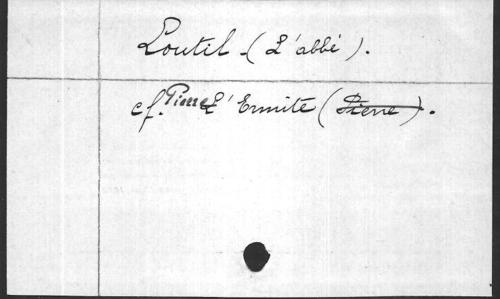 Loutil (L'abbé).
cf. Pierre L'Ermite (Pierre).